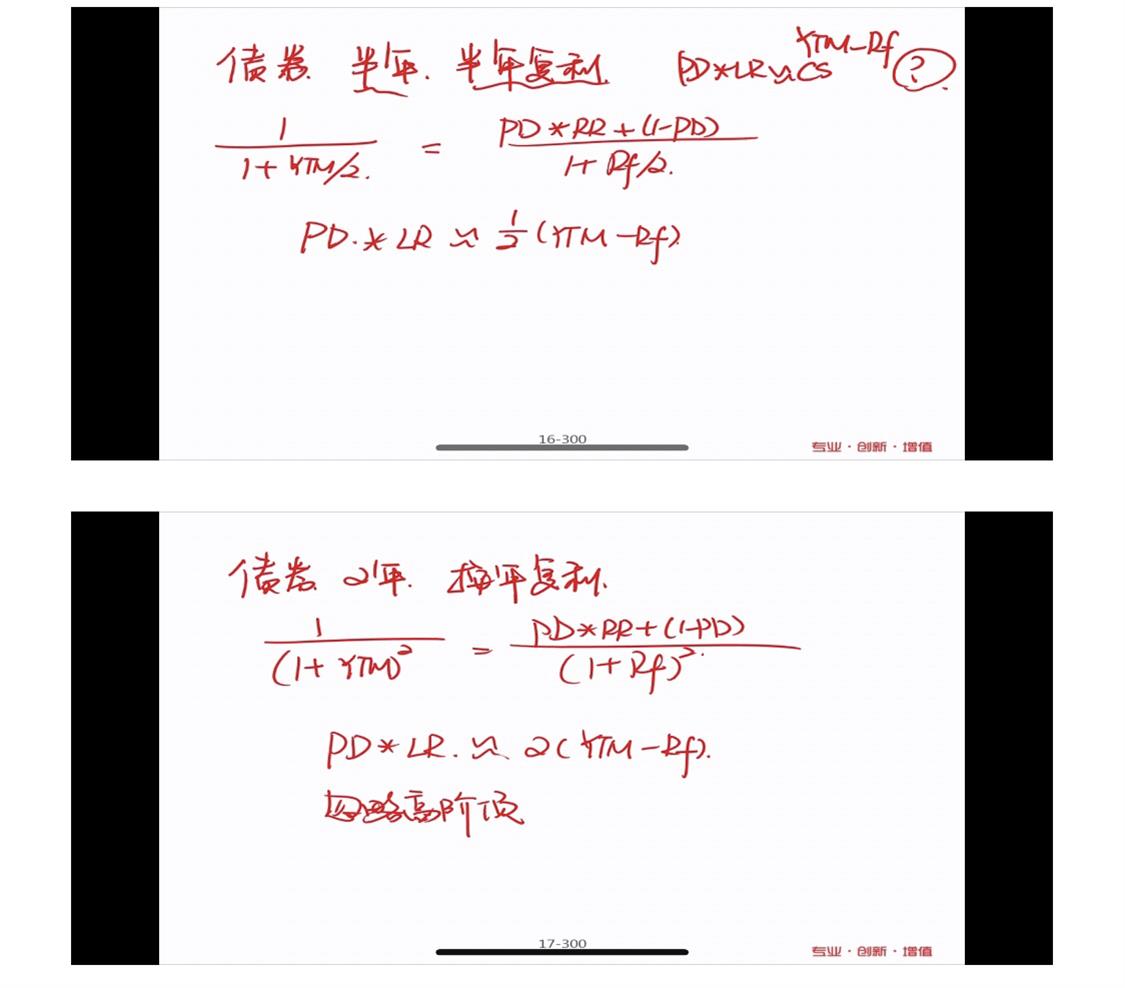 债券 半年. 半年复利. PD*LR≈CS YTM-Rf ?
1 / (1+YTM/2.) = (PD*RR+(1-PD)) / (1+Rf/2.)
PD.*LR ≈ 1/2 (YTM-Rf).
16-300
专业·创新·增值
债券 2年. 按年复利.
1 / (1+YTM)² = (PD*RR+(1-PD)) / (1+Rf)².
PD*LR. ≈ 2(YTM-Rf).
忽略高阶项
17-300
专业·创新·增值